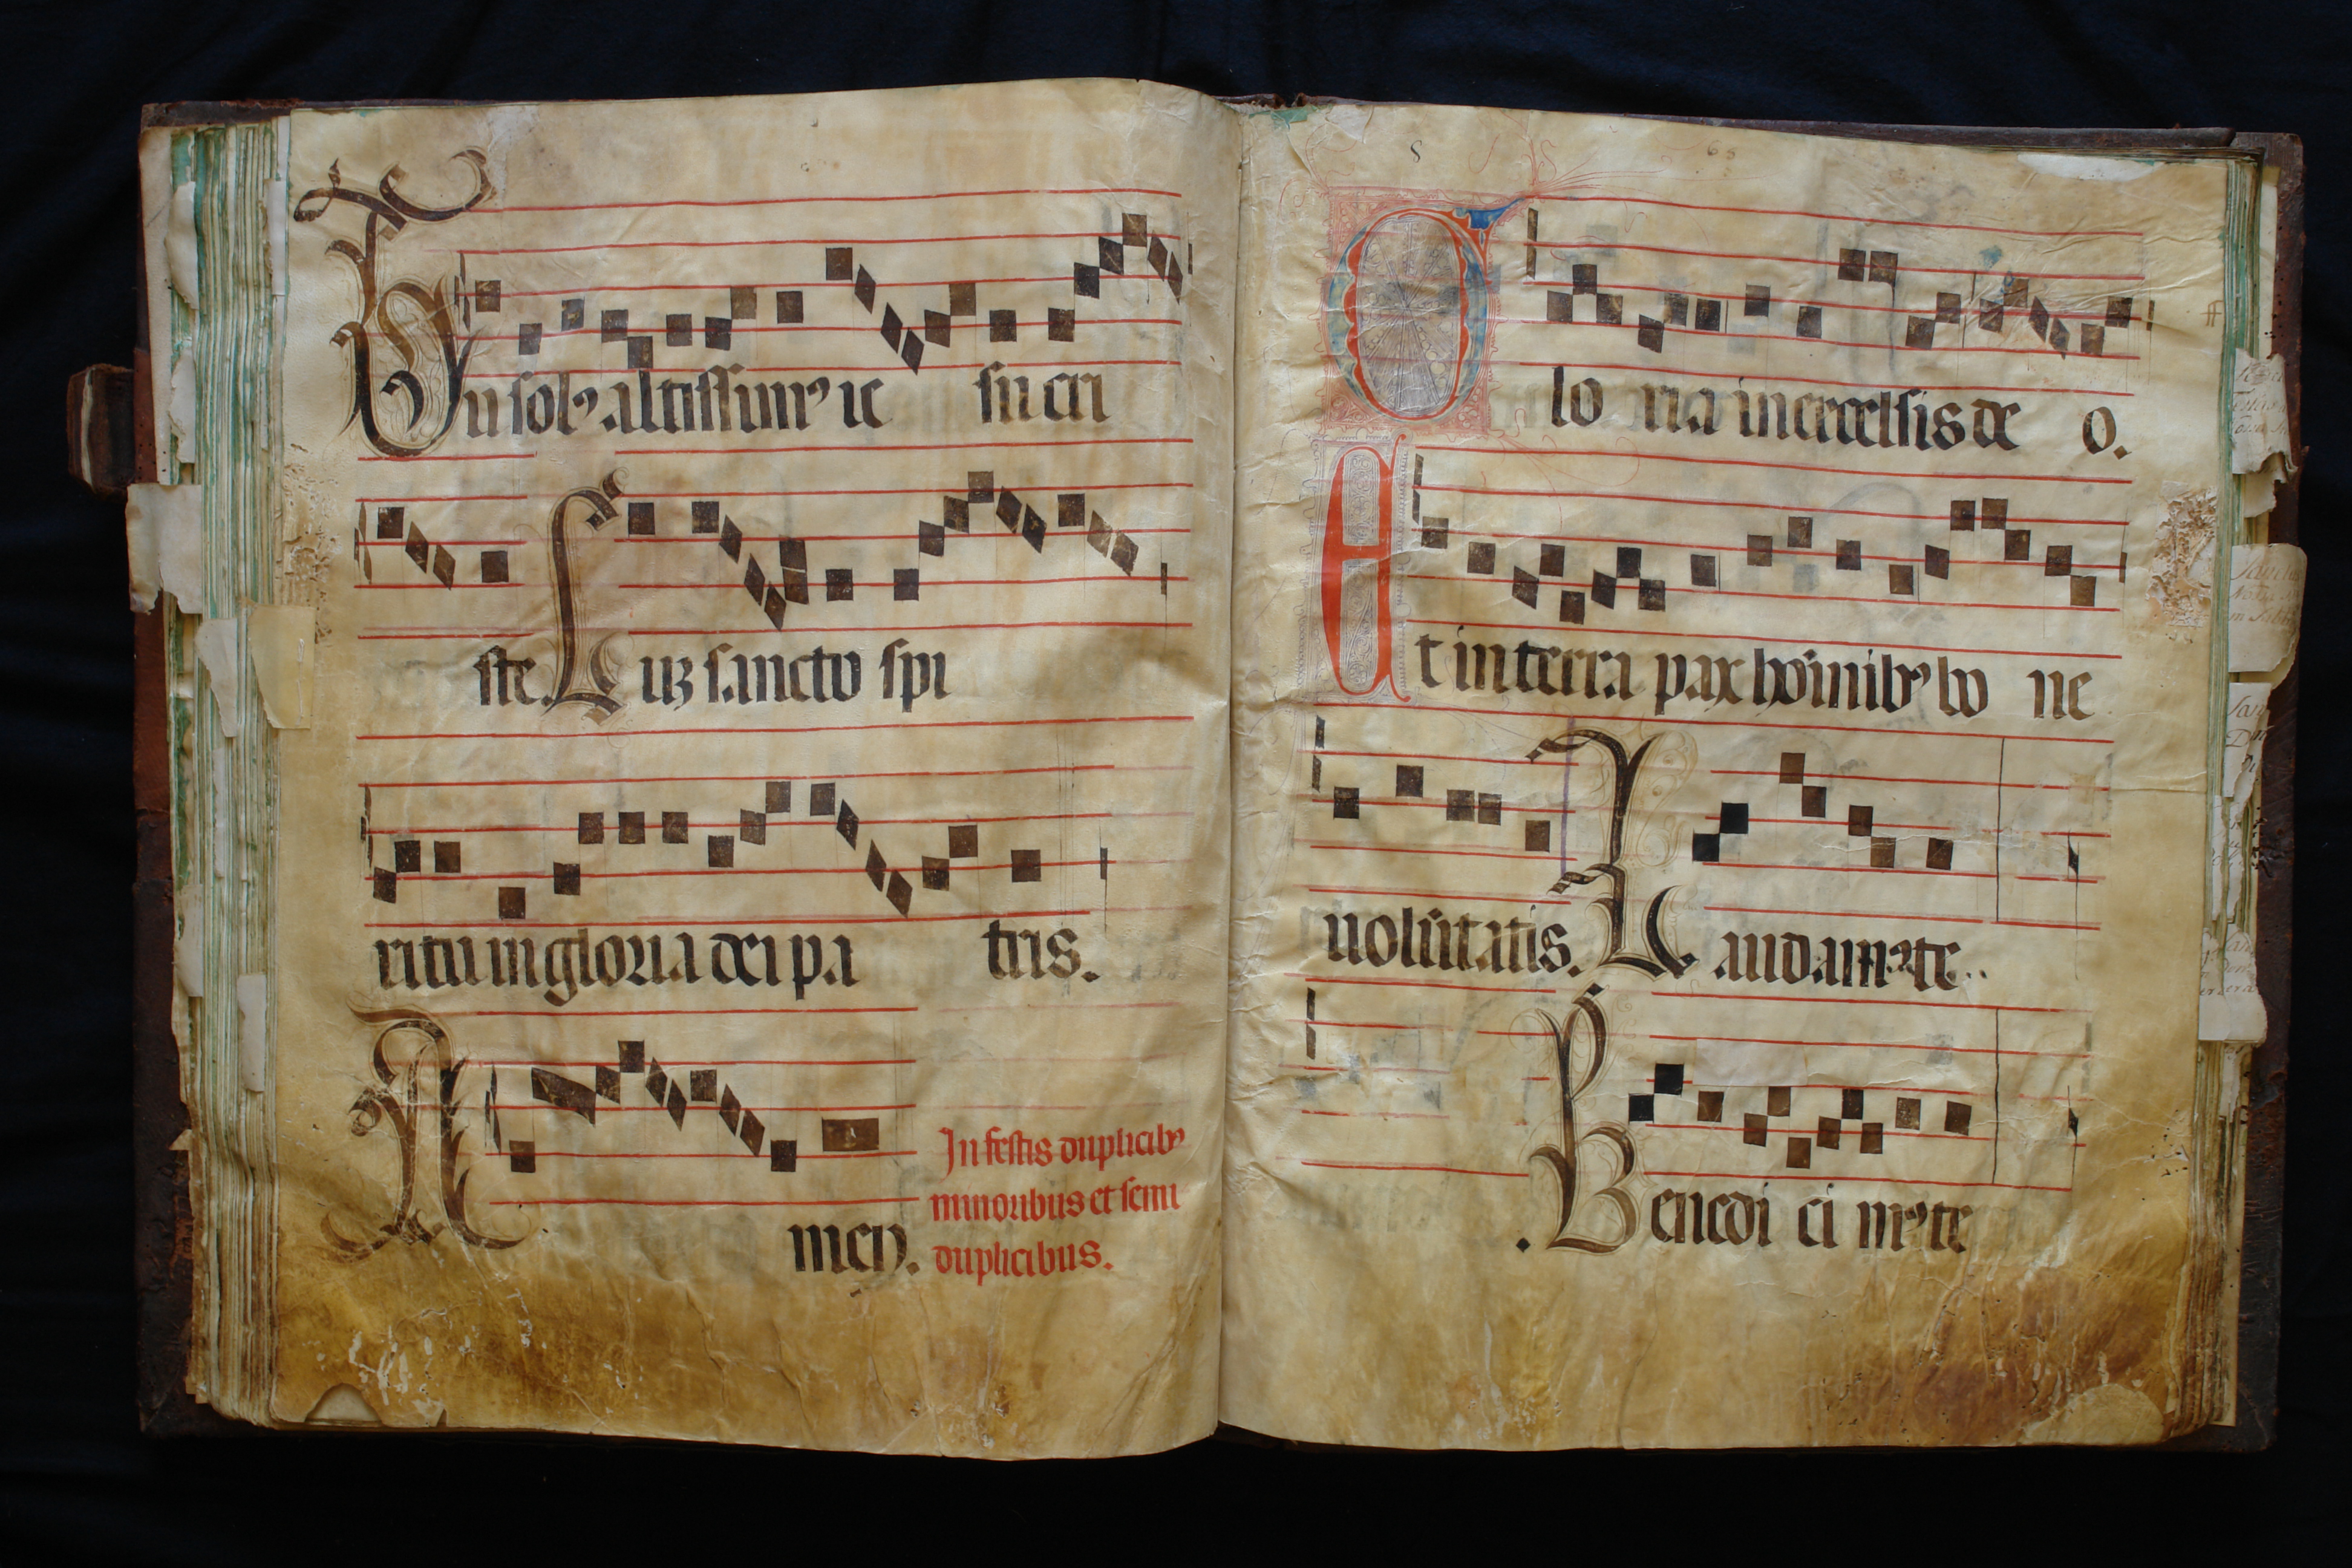 Tu sol⁹ altissim⁹ ie su cri
ste. Cuʒ sancto spi
ritu in gloria dei pa tris.
A men.
In festis duplicib⁹
minoribus et semi
duplicibus.
Glo ria in excelsis de o.
Et in terra pax hoīnib⁹ bo ne
uolūtatis. Laudam⁹ te.
Benedi ci m⁹ te